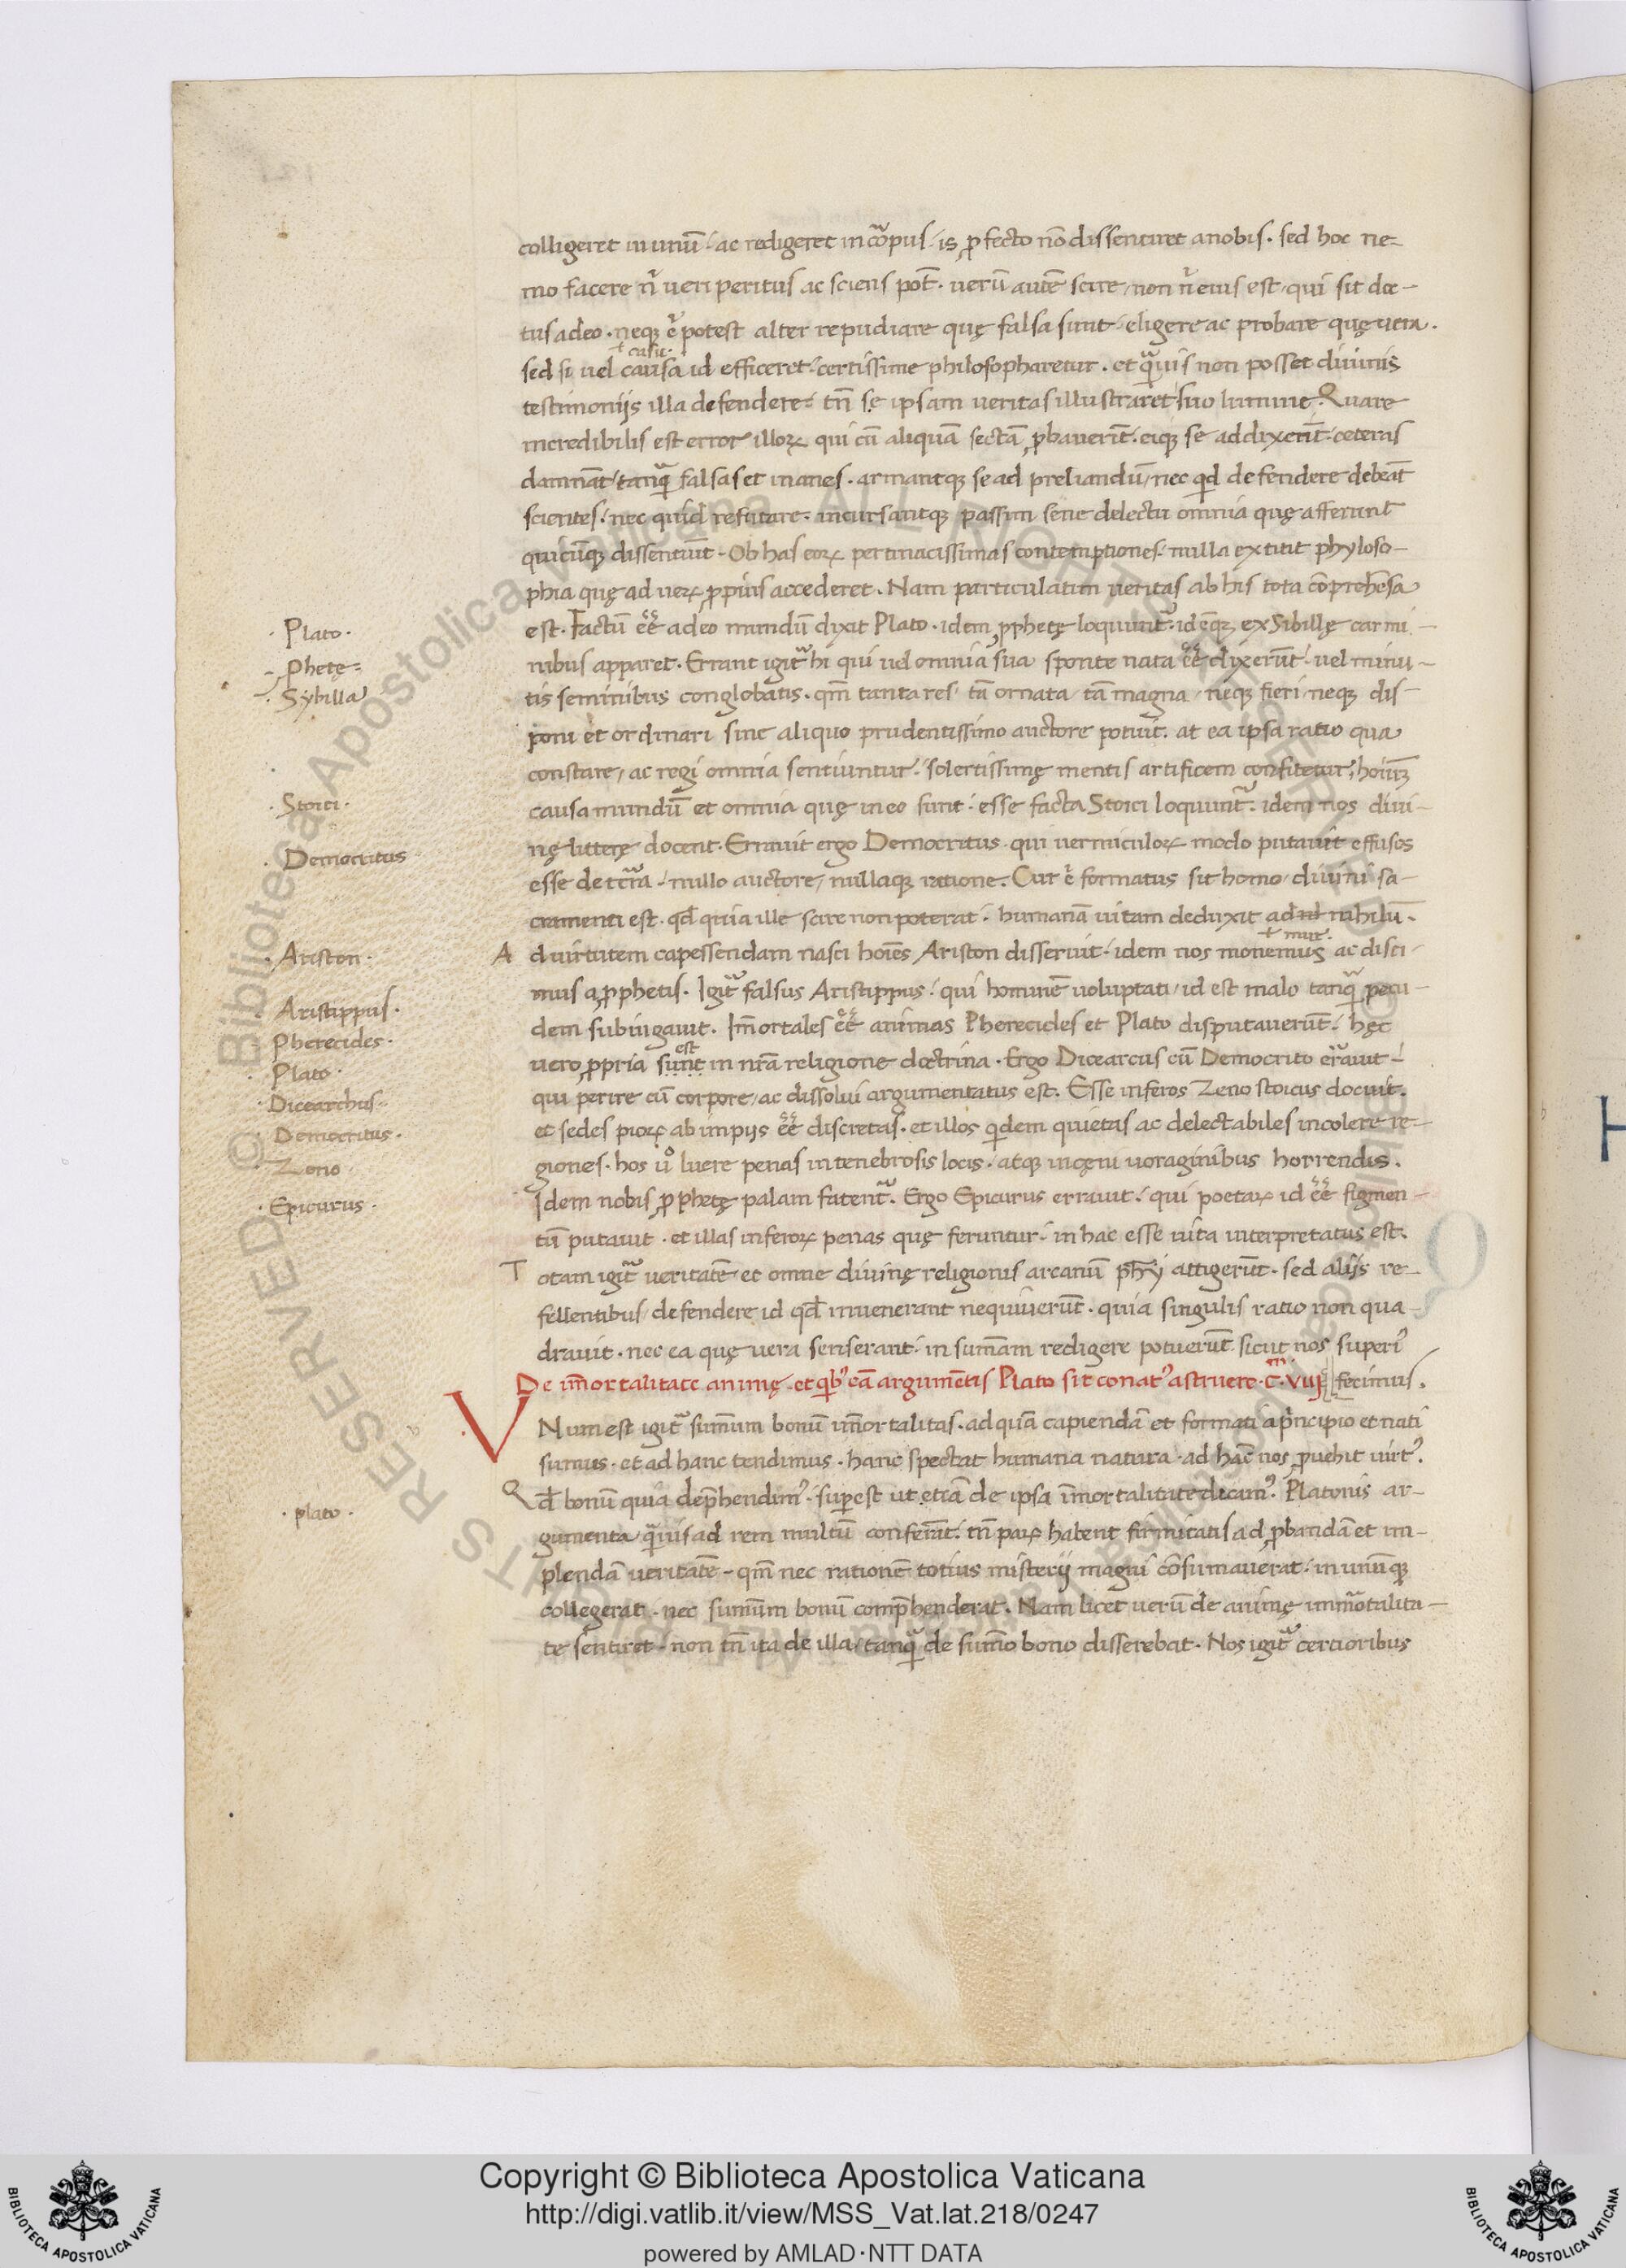 colligeret in unū. ac redigeret in corpus. is ꝓfecto nō dissentiret a nobis. sed hoc ne-
mo facere n̄ ueri peritus ac sciens pot̄. uerū autē scire, non n̄ eius est, qui sit doc-
tus a deo. neqꝫ ē potest alter repudiare quę falsa sunt. eligere ac probare quę uera.
+ casu.
sed si uel causa id efficeret. certissime philosopharetur. et quāuis non posset diuinis
testimoniis illa defendere. tn̄ se ipsam ueritas illustraret suo lumine. Quare
incredibilis est error illoꝝ qui cū aliquā sectā ꝓbauerīt. eiqꝫ se addixerīt. ceteras
damnāt tanquā falsas et inanes. armantqꝫ se ad preliandū, nec qd defendere debeāt
scientes. nec quid refutare. incursantqꝫ passim sine delectu omnia quę afferunt
quicūqꝫ dissentiūt. Ob has eoꝝ pertinacissimas contemptiones. nulla extitit phyloso-
phia quę ad ueꝝ ꝓpius accederet. Nam particulatim ueritas ab his tota cōprehēsa
est. Factū eē̄ a deo mundū dixit Plato. idem ꝓphetę loquunt. idēqꝫ ex Sibillę carmi-
nibus apparet. Errant igit hi qui uel omnia sua sponte nata eē̄ dixerūt. uel minu-
tis seminibus conglobatis. qm̄ tanta res. tā ornata, tā magna, neqꝫ fieri, neqꝫ dis-
poni et ordinari sine aliquo prudentissimo auctore potuit. at ea ipsa ratio qua
constare, ac regi omnia sentiuntur. solertissimę mentis artificem confitetur. hoīuꝫ
causa mundū et omnia quę in eo sunt. esse facta Stoici loquunt. idem nos diui-
nę litterę docent. Errauit ergo Democritus. qui uermiculoꝝ modo putauit effusos
esse de terra. nullo auctore, nullaqꝫ ratione. Cur ē formatus sit homo, diuini sa-
cramenti est. qd̄ quia ille scire non poterat. humanā uitam deduxit ad nihilū.
+ mur.
Ad uirtutem capessendam nasci hoīes Ariston disseruit. idem nos monemus ac disci-
mus a ꝓphetis. Igit falsus Aristippus. qui hominē uoluptati, id est malo tanquā pecu-
dem subiugauit. Im̄ortales eē̄ animas Pherecides et Plato disputauerūt. hęc
est
uero ꝓpria sunt in nr̄a religione doctrina. Ergo Dicearcus cū Democrito errauit.
qui perire cū corpore, ac dissolui argumentatus est. Esse inferos Zeno stoicus docuit.
et sedes pioꝝ ab impiis eē̄ discretas. et illos qidem quietas ac delectabiles incolere re-
giones. hos uº luere penas in tenebrosis locis. atqꝫ in cęni uoraginibus horrendis.
Idem nobis ꝓphetę palam fatent. Ergo Epicurus errauit. qui poetaꝝ id eē̄ figmen-
tū putauit. et illas inferoꝝ penas quę feruntur. in hac esse uita interpretatus est.
Totam igit ueritatē et omne diuinę religionis arcanū ph̄yi attigerūt. sed aliis re-
fellentibus, defendere id qd̄ inuenerant nequiuerūt. quia singulis ratio non qua-
drauit. nec ea quę uera senserant. in sum̄am redigere potuerūt. sicut nos superi9
De im̄ortalitate animę. et qib9 eā argumētis Plato sit conat9 astruere. c̄. viij fecimus.
VNum est igit sum̄um bonū im̄ortalitas. ad quā capiendā et formati a principio et nati
sumus. et ad hanc tendimus. hanc spectat humana natura. ad hāc nos ꝓuehit uirt9.
Qd̄ bonū quia dep̄hendim9. superest ut etiā de ipsa īmortalitate dicam9. Platonis ar-
gumenta quāuis ad rem multū conferāt. tn̄ paꝝ habent firmitatis ad ꝓbandā et im-
plendā ueritatē. qm̄ nec rationē totius misterii magni cōsumauerat. in unūqꝫ
collegerat. nec sum̄um bonū comp̄henderat. Nam licet uerū de animę immortalita-
te sentiret. non tn̄ ita de illa, tanquā de sum̄o bono disserebat. Nos igit certioribus
. Plato .
. ꝓphetę .
. Sybilla
. Stoici .
. Democritus
. Ariston .
. Aristippus .
. Pherecides .
. Plato .
. Dicearchus .
. Democritus .
. Zeno
. Epicurus .
. plato .
Copyright © Biblioteca Apostolica Vaticana
http://digi.vatlib.it/view/MSS_Vat.lat.218/0247
powered by AMLAD·NTT DATA
BIBLIOTECA APOSTOLICA VATICANA
BIBLIOTECA APOSTOLICA VATICANA